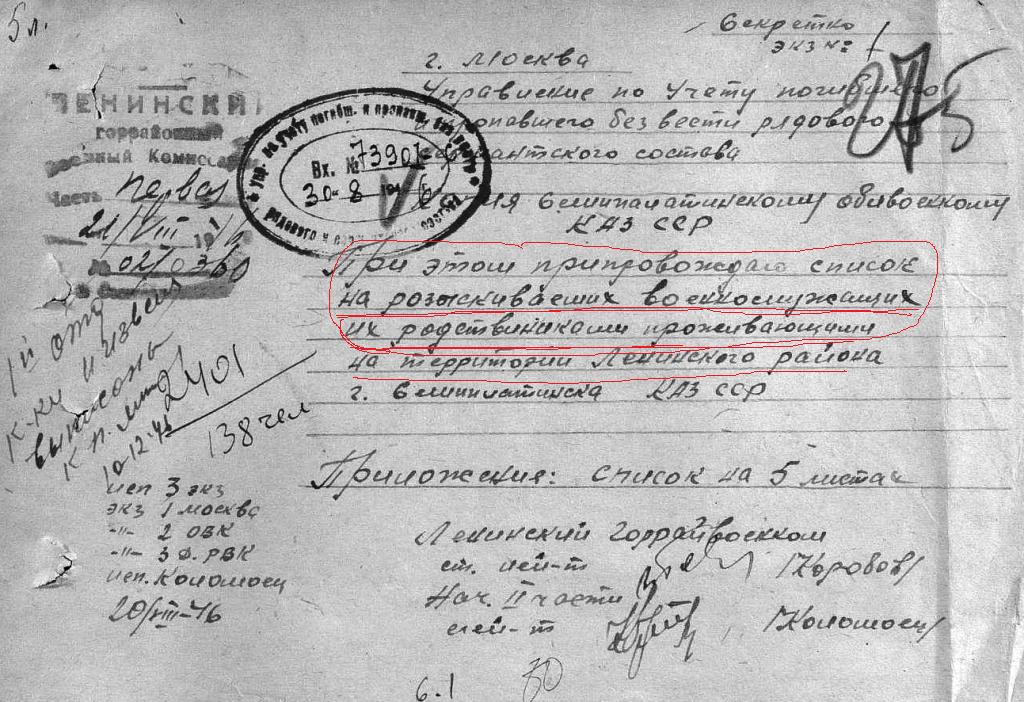 5 л.
Секретно
экз №: 1
275
г. Москва
Управление по Учету погибшего
и пропавшего без вести рядового
сержантского состава
ЛЕНИНСКИЙ
горрайонный
Военный Комиссариат
Часть первая
21/VIII 1946
№ 02/0360
Упр. по учету погибш. и пропавш. без вести
рядового и серж. состава
Вх. № 73901
30-8 1946
Копия Семипалатинскому облвоенкому
КАЗ ССР
При этом припровождаю список
на розыскиваеших военнослужащих
их родствиниками проживающими
на территории Ленинского района
г. Семипалатинска КАЗ ССР
1й отд
К-ки и извещ
выписаны
10-12-46
2401
138 чел
Приложение: список на 5 листах
исп 3 экз
экз 1 москва
-"- 2 ОВК
-"- 3 Ф. РВК
исп. Коломоец
20/VIII-46
Ленинский Горрайвоенком
ст. лей-т /Коробов/
Нач. II части
лей-т /Коломоец/
6.1
30